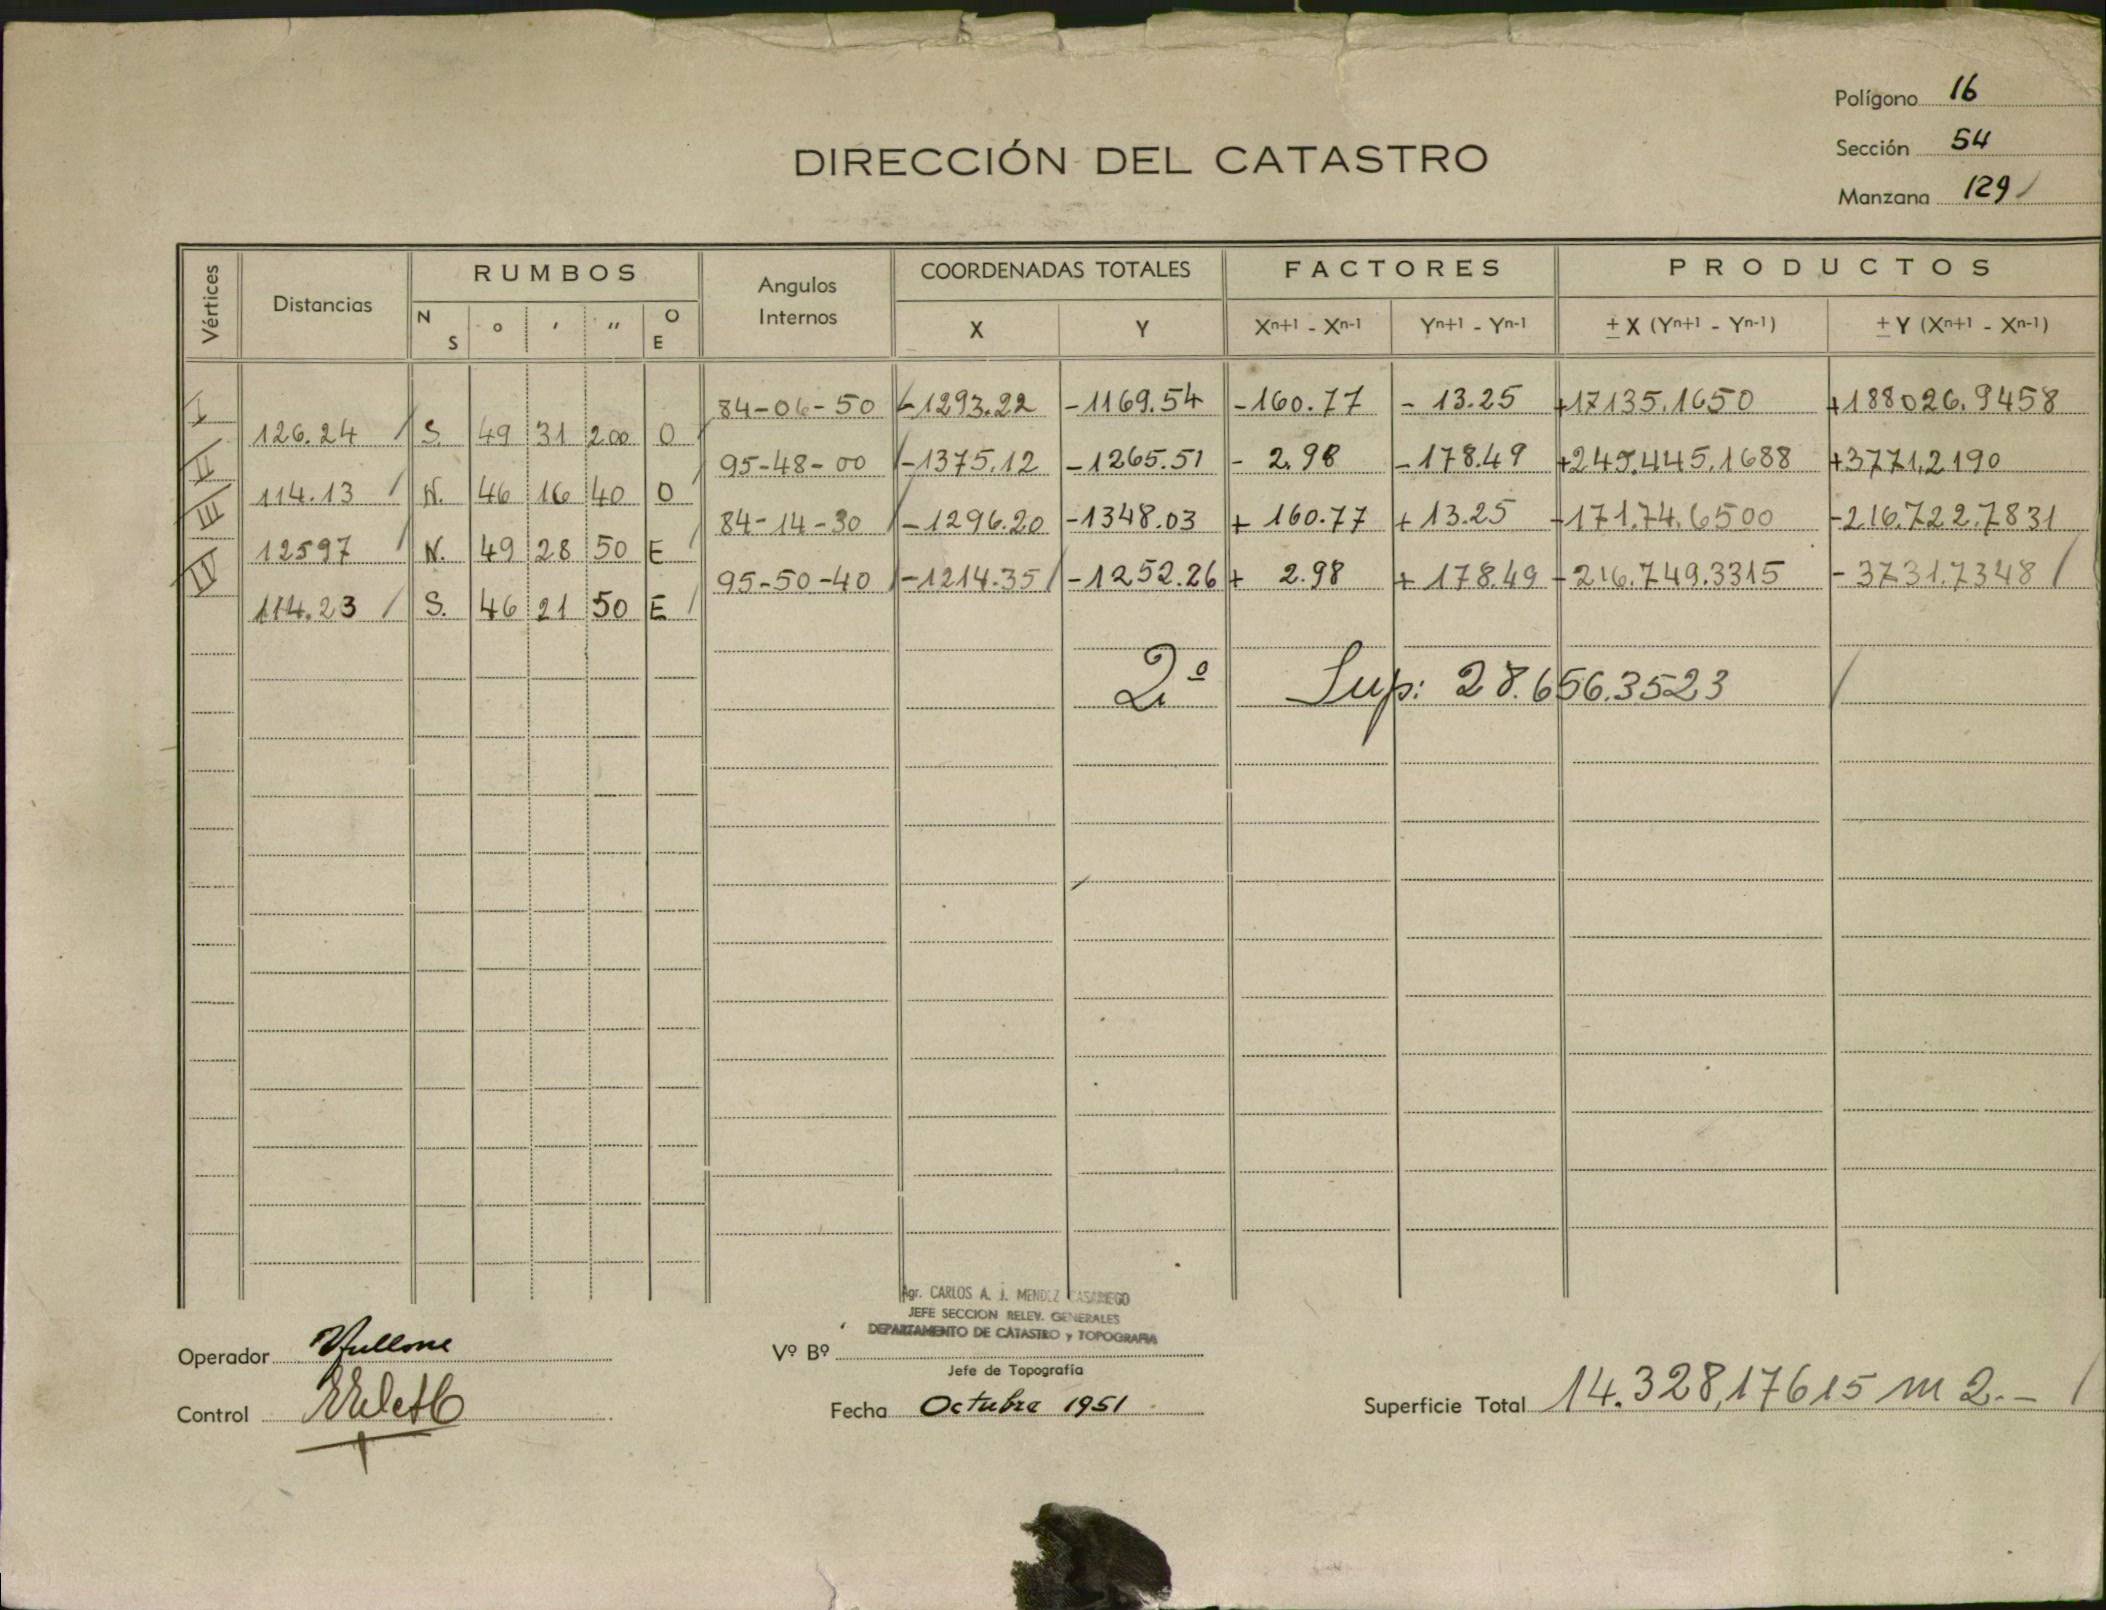 Polígono 16
Sección 54
Manzana 129
DIRECCIÓN DEL CATASTRO
Vértices Distancias RUMBOS Angulos Internos COORDENADAS TOTALES FACTORES PRODUCTOS
N S o ' " O E X Y Xn+1 - Xn-1 Yn+1 - Yn-1 ± X (Yn+1 - Yn-1) ± Y (Xn+1 - Xn-1)
I 84-06-50 -1293.22 -1169.54 -160.77 - 13.25 +17135.1650 +188026.9458
126.24 S. 49 31 200 O
II 95-48-00 -1375.12 -1265.51 - 2.98 -178.49 +245.445.1688 +3771.2190
114.13 N. 46 16 40 O
III 84-14-30 -1296.20 -1348.03 + 160.77 + 13.25 -171.74.6500 -216.722.7831
12597 N. 49 28 50 E
IV 95-50-40 -1214.35 -1252.26 + 2.98 + 178.49 -216.749.3315 - 3731.7348
114.23 S. 46 21 50 E
2º Sup: 28.656.3523
Agr. CARLOS A. J. MENDEZ CASARIEGO
JEFE SECCION RELEV. GENERALES
DEPARTAMENTO DE CATASTRO y TOPOGRAFIA
Operador
Vº Bº
Jefe de Topografía
Control
Fecha Octubre 1951
Superficie Total 14.328,17615 m 2.-